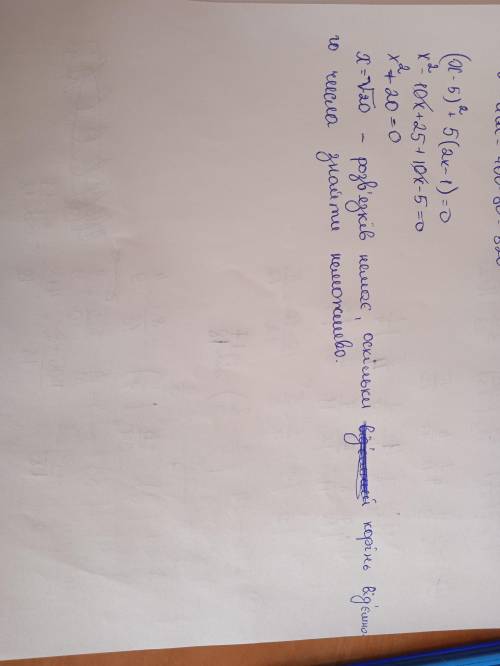 (x-5)² + 5(2x-1)=0
x² - 10x+25+10x-5=0
x² + 20 = 0
x=√20 - розв'язків немає, оскільки корінь від'ємно
го числа знайти неможливо.